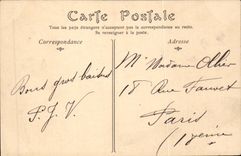 Carte Postale
Tous les pays étrangers n'acceptent pas la correspondance au recto.
Se renseigner à la poste.
Correspondance
Adresse
Bons gros baisers
P. J. V.
Mr Madame Allier
18 Rue Fauvet
Paris
(17eme)